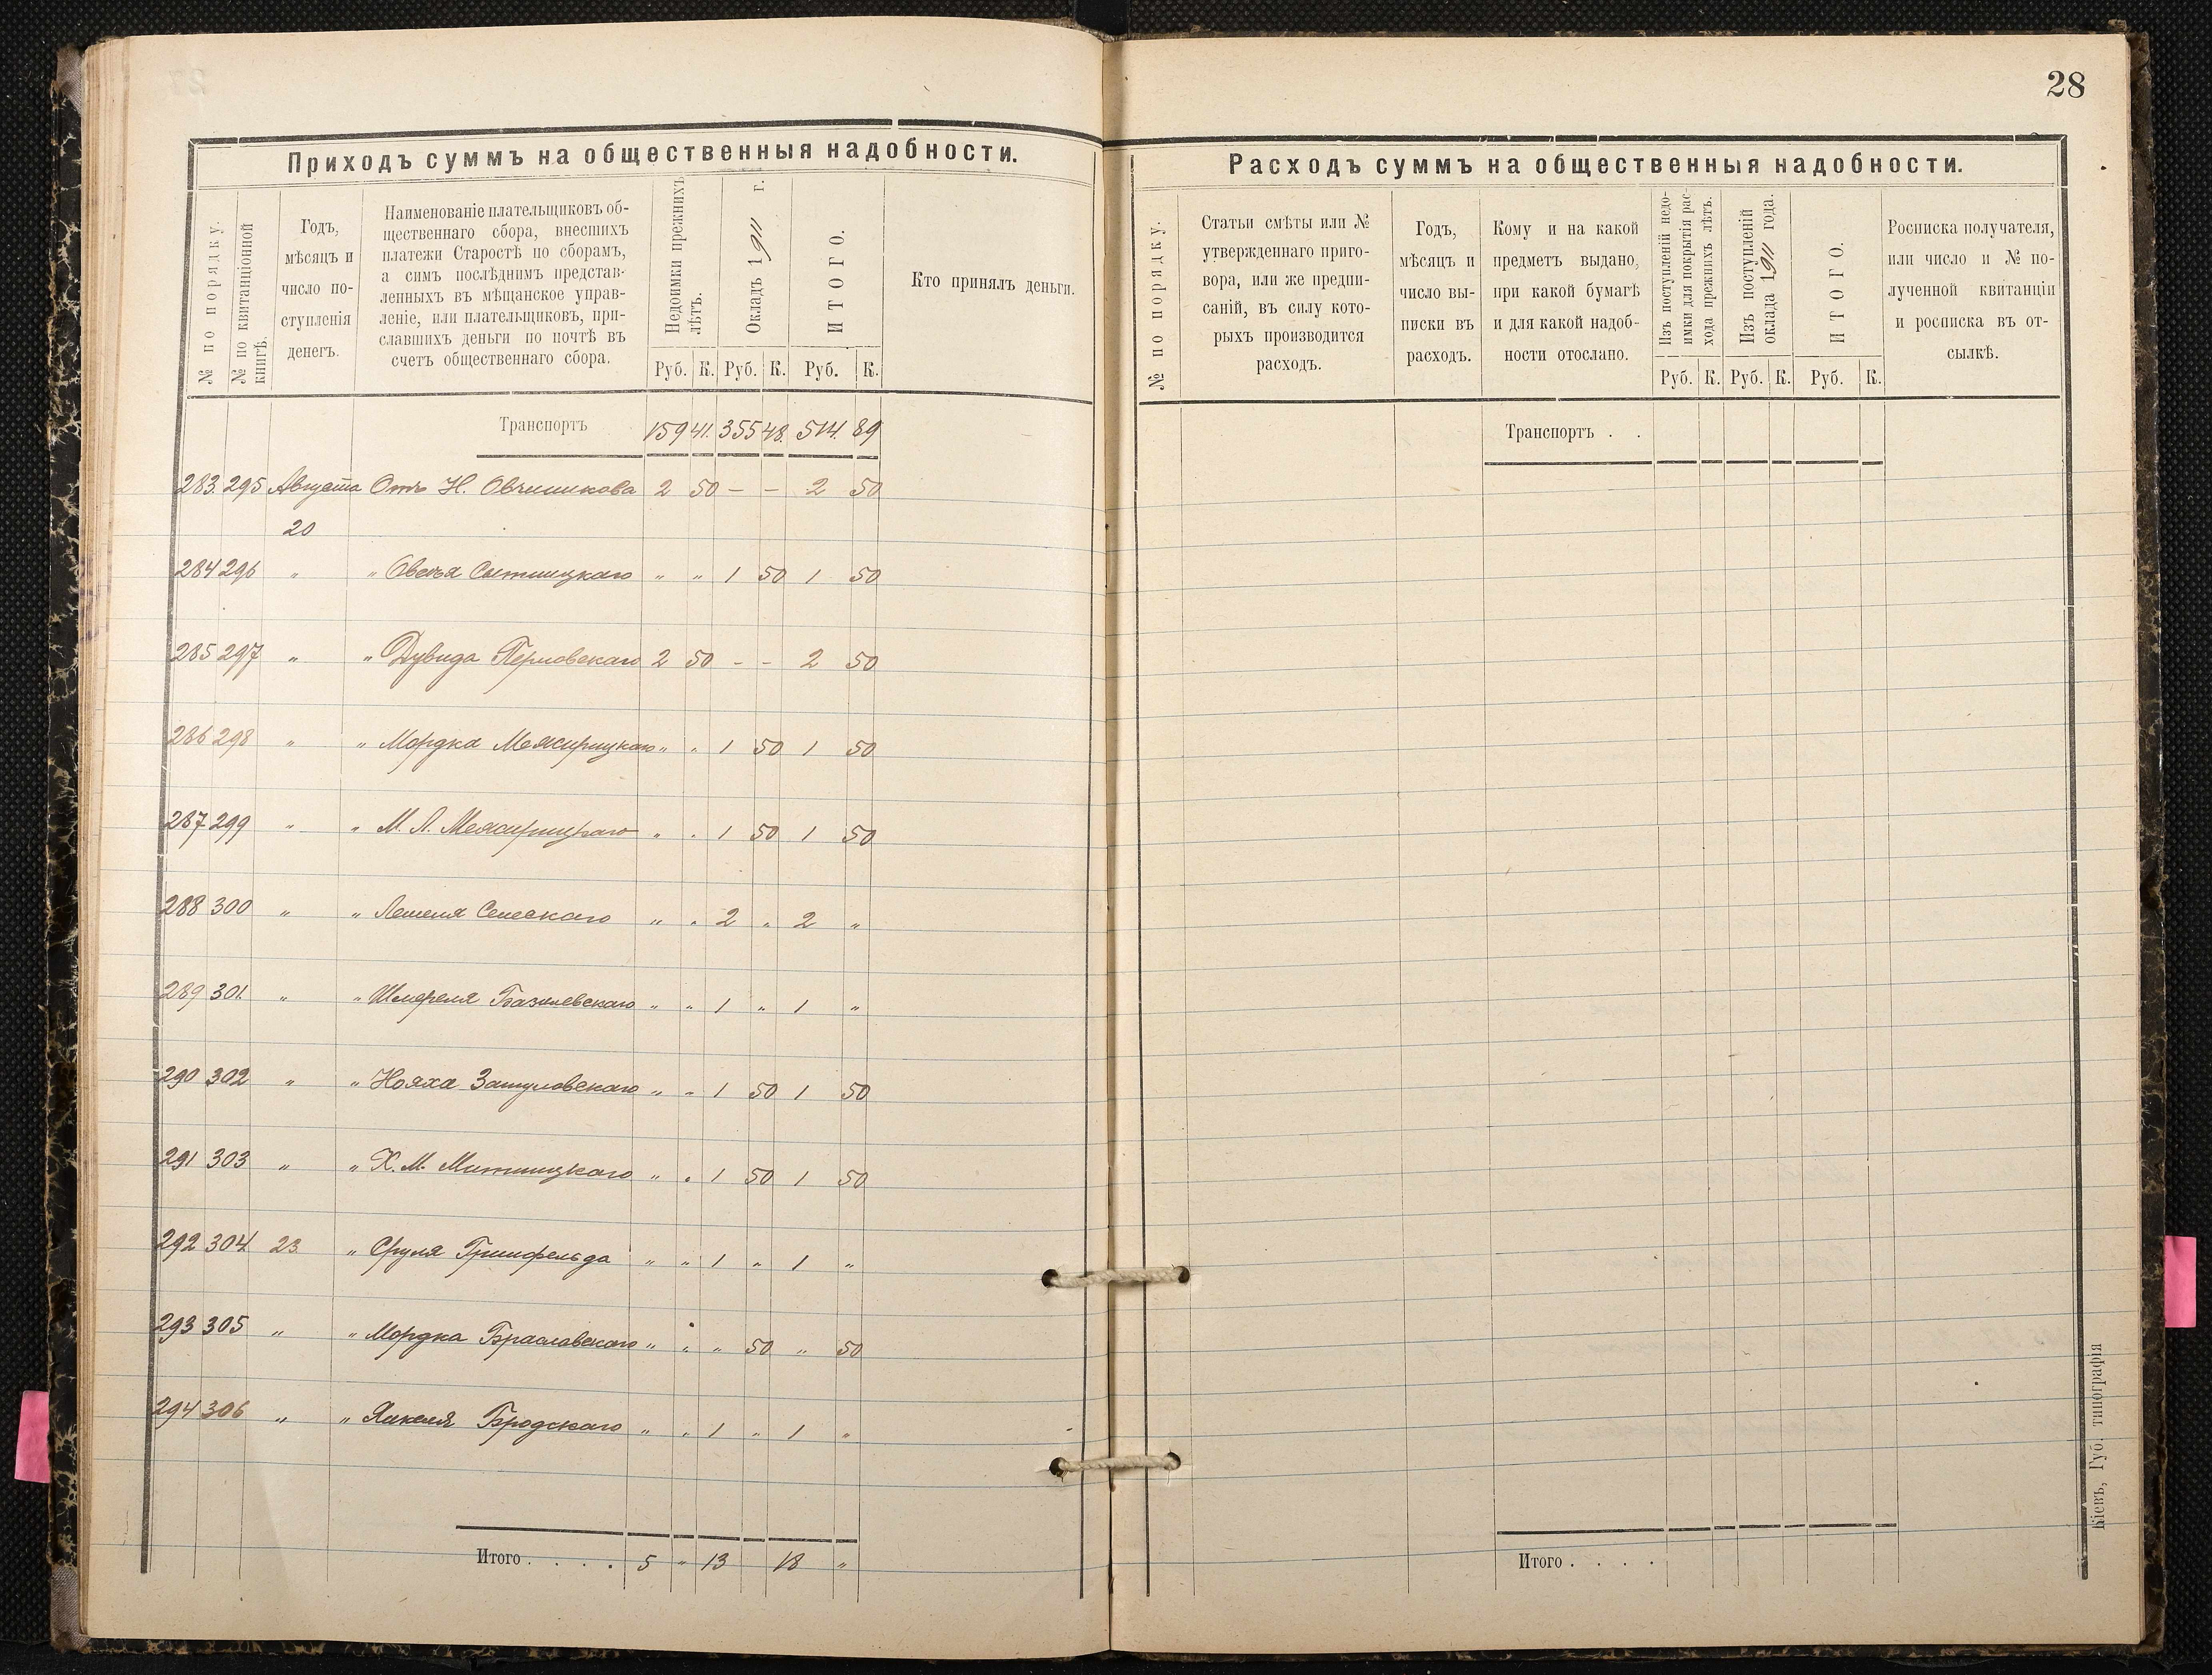 28
Приходъ суммъ на общественныя надобности.
№ по порядку.
№ по квитанціонной
книгѣ.
Годъ,
мѣсяцъ и
число по-
ступленія
денегъ.
Наименованіе плательщиковъ об-
щественнаго сбора, внесшихъ
платежи Старостѣ по сборамъ,
а симъ послѣднимъ представ-
ленныхъ въ мѣщанское управ-
леніе, или плательщиковъ, при-
славшихъ деньги по почтѣ въ
счетъ общественнаго сбора.
Недоимки прежнихъ
лѣтъ.
Окладъ 1911 г.
ИТОГО.
Руб. К. Руб. К. Руб. К.
Кто принялъ деньги.
Транспортъ 159 41. 355 48. 514. 89
283. 295 Августа Отъ Н. Овчинникова 2 50 — — 2 50
20
284 296 " " Овсея Сытницкаго " " 1 50 1 50
285 297 " " Дувида 2 50 - - 2 50
286 298 " " Мордка Межирицкаго " " 1 50 1 50
287 299 " " М. Л. Межирицкаго " " 1 50 1 50
288 300 " " " " 2 " 2 "
289 301. " " Шмереля Базилевскаго " " 1 " 1 "
290 302 " " Нояха " " 1 50 1 50
291 303 " " Х. М. Митницкаго " " 1 50 1 50
292 304 23 " Сруля Гринфельда " " 1 " 1 "
293 305 " " Мордка Браславскаго " " " 50 " 50
294 306 " " Янкеля Бродскаго " " 1 " 1 "
Итого . . . . 5 " 13 18 "
Расходъ суммъ на общественныя надобности.
№ по порядку.
Статьи смѣты или №
утвержденнаго приго-
вора, или же предпи-
саній, въ силу кото-
рыхъ производится
расходъ.
Годъ,
мѣсяцъ и
число вы-
писки въ
расходъ.
Кому и на какой
предметъ выдано,
при какой бумагѣ
и для какой надоб-
ности отослано.
Изъ поступленій недо-
имки для покрытія рас-
хода прежнихъ лѣтъ.
Изъ поступленій
оклада 1911 года.
ИТОГО.
Руб. К. Руб. К. Руб. К.
Росписка получателя,
или число и № по-
лученной квитанціи
и росписка въ от-
сылкѣ.
Транспортъ . .
Итого . . . .
Кіевъ, Губ. типографія